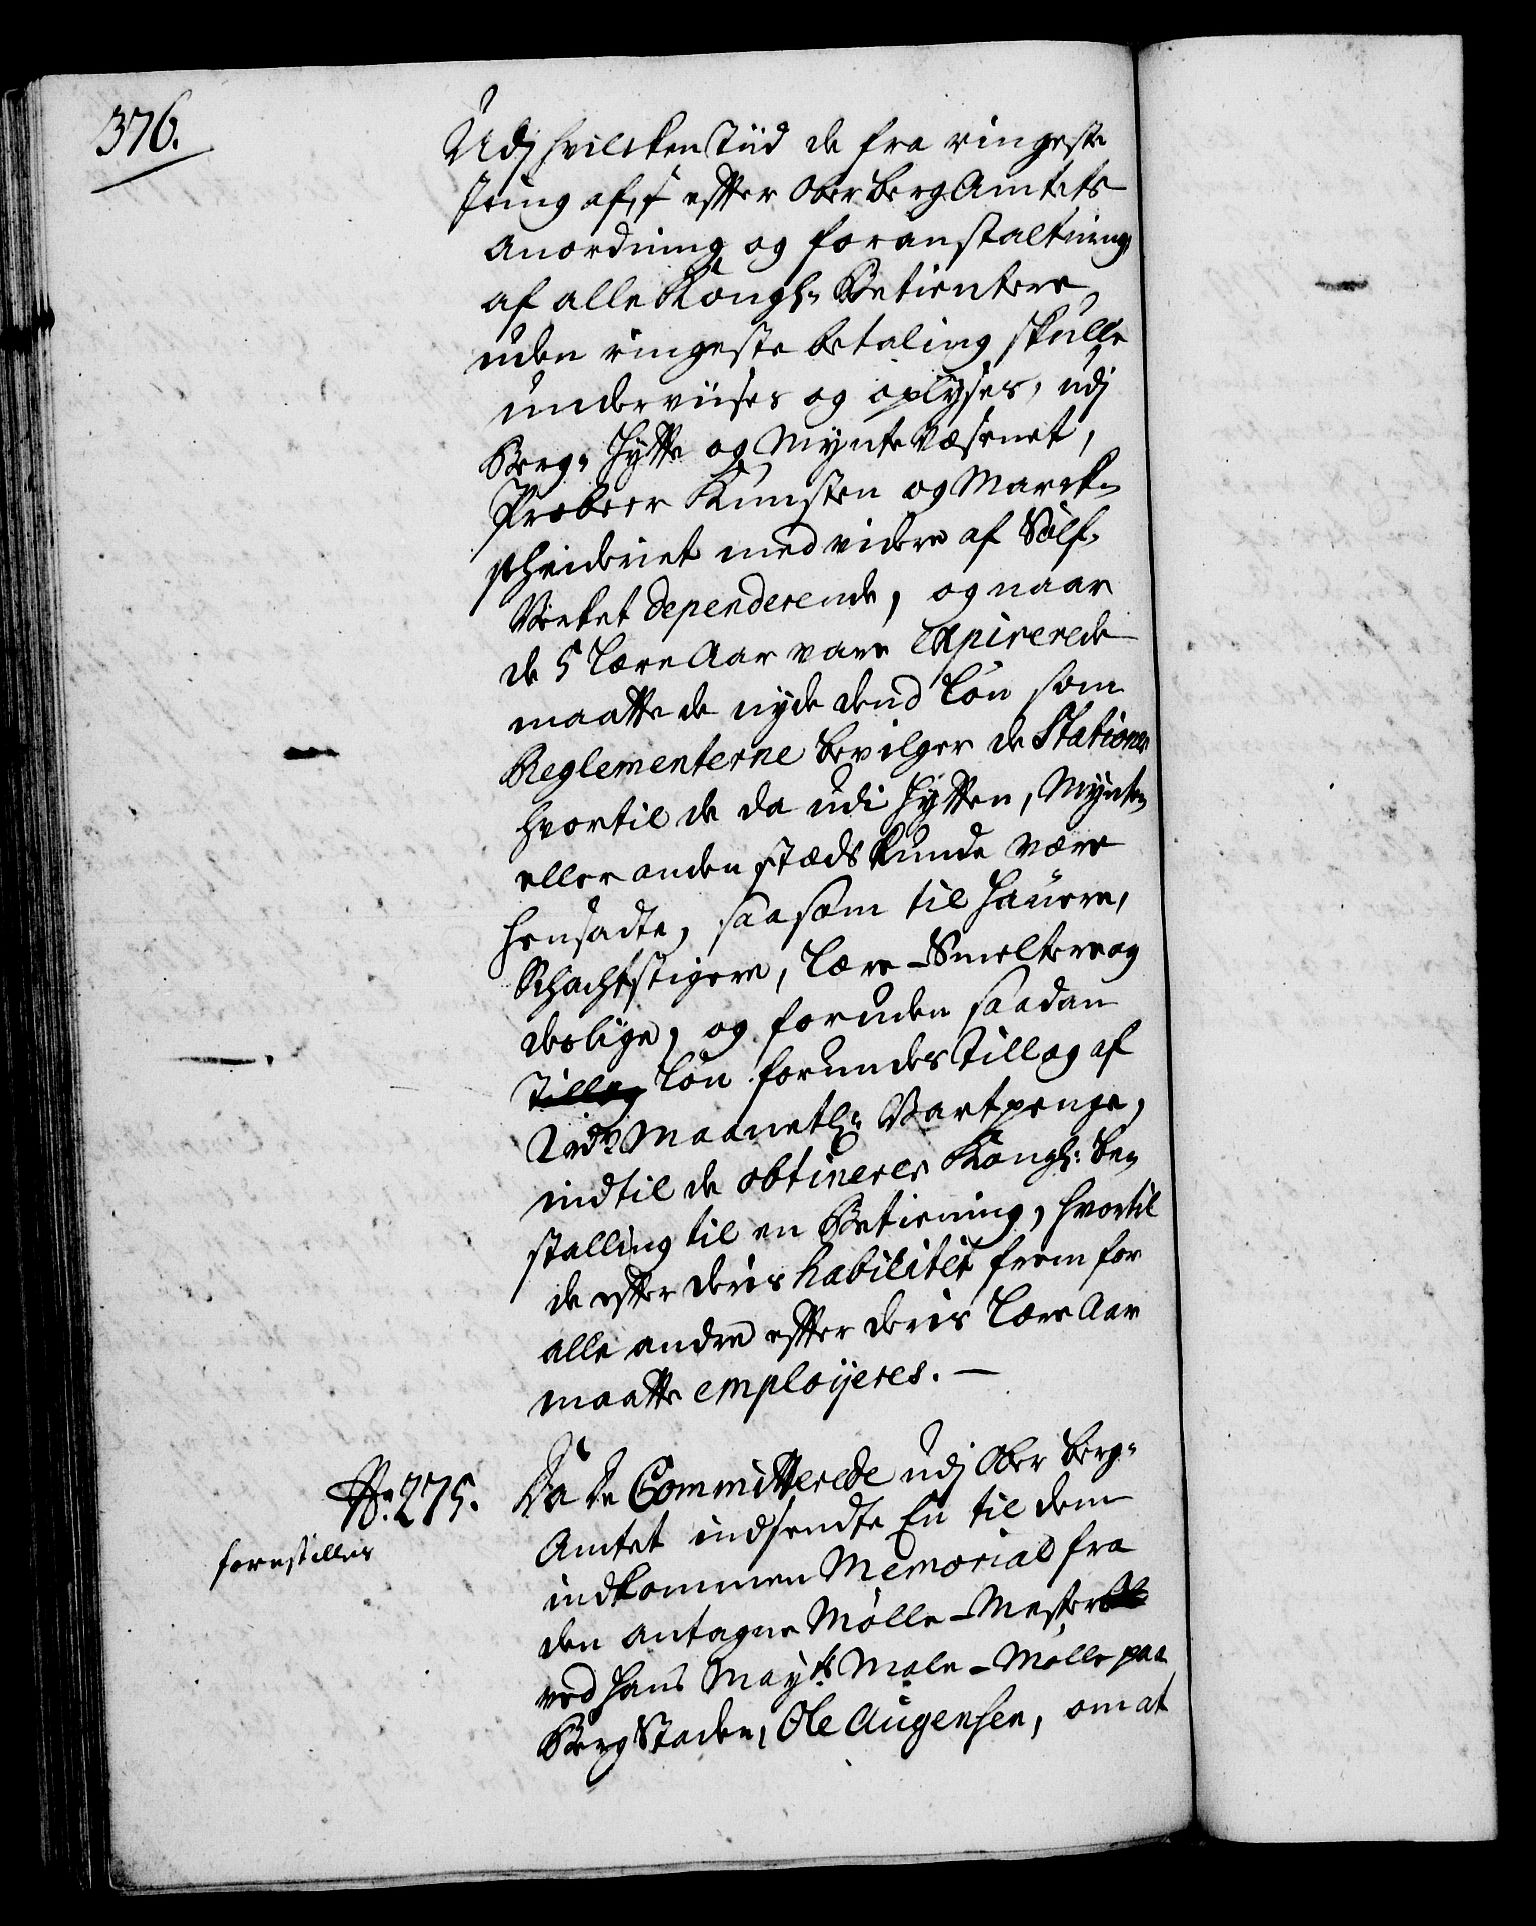 376.
Udj hvilcken Tiid de fra ringeste
af, efter Ober Berg Amtets
anordning og foranstaltning
af alle Kongl: Betientere
uden ringeste betaling skulle
underviises og oplyses, udj
Berg- Hytte og Myntevæsenet,
Probeer Kunsten og Marck-
scheideriet med videre af Sølf-
Verket dependerende, og naar
de 5 Lære Aar vare Expirerede
maatte de nyde dend Løn som
Reglementerne bevilger de Stationer
hvortil de da udi Hytten, Mynten
eller anden stæds kunde være
hensadte, saasom til Hauere,
Schachtstigere, Lære-Smeltere og
deslige, og foruden saadan
Tillæg Løn forundes Tillæg af
2 rdr Maanetl: Vartpenge,
indtil de obtinerer Kongl: Be-
stalling til en Betiening, hvortil
de efter deris habilitet frem for
alle andre efter deris Lære Aar
maatte employeres. —
No. 275.
forestilles
Da de Committerede udj Ober Berg-
Amtet indsendte En til dem
indkommen Memorial fra
den antagne Mølle-Mester
ved Hans Mayts Male-Mølle paa
Berg Staden, Ole Augensen, om at